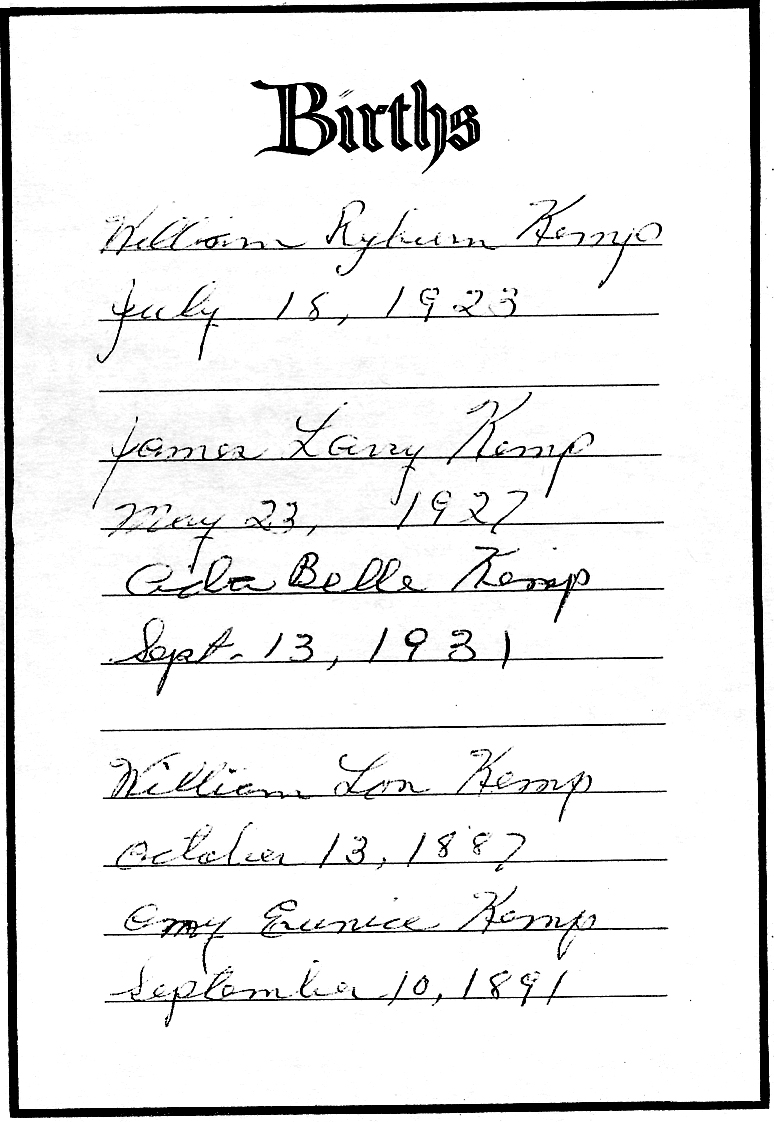 Births
William Ryburn Kemp
July 18, 1923
James Larry Kemp
May 23, 1927
Ada Belle Kemp
Sept. 13, 1931
William Lon Kemp
October 13, 1887
Amy Eunice Kemp
September 10, 1891